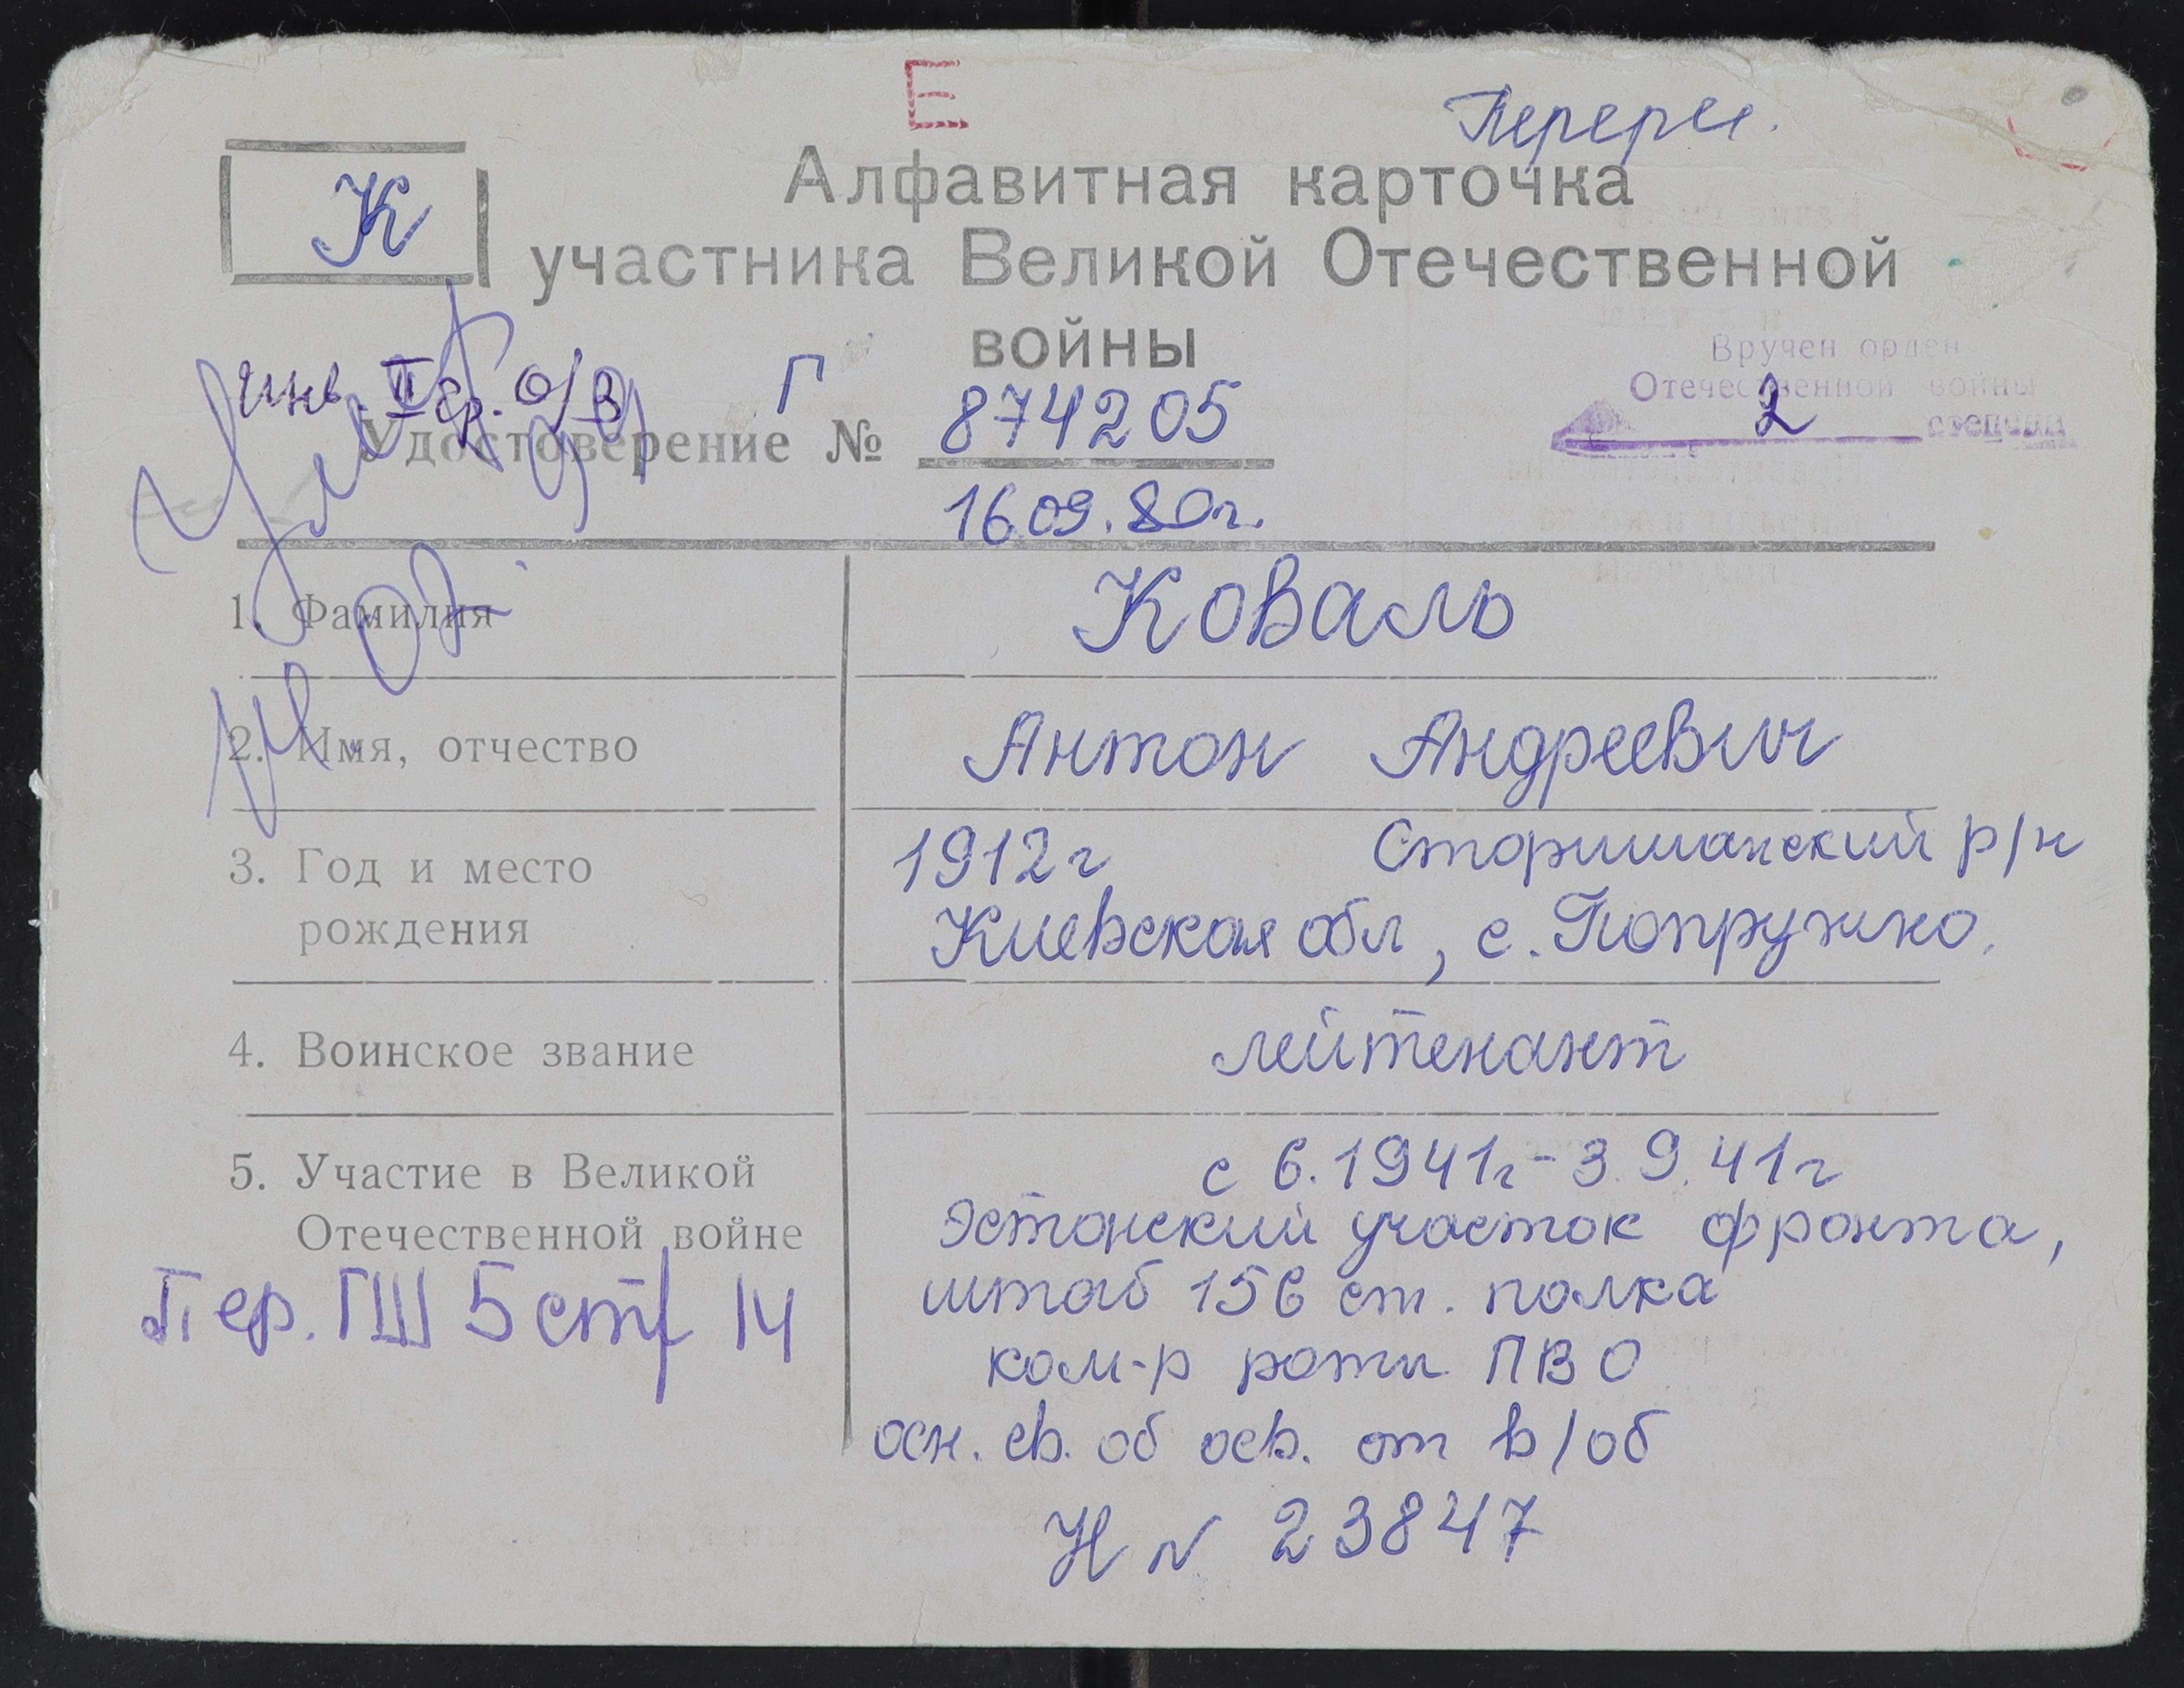 Е
Перерег.
К
Алфавитная карточка
участника Великой Отечественной
войны
Вручен орден
Отечественной войны
2 степени
инв. II гр. о/з Г
Удостоверение № 874205
16.09.80г.
Умер
1. Фамилия Коваль
2. Имя, отчество Антон Андреевич
3. Год и место 1912г р/н
рождения Киевская обл, с. Попружно.
4. Воинское звание лейтенант
5. Участие в Великой с 6.1941г - 3.9.41г
Отечественной войне Эстонский участок фронта,
Пер. ГШ 5 стр 14 штаб 156 ст. полка
ком-р роты ПВО
осн. св. об осв. от в/об
Н № 23847